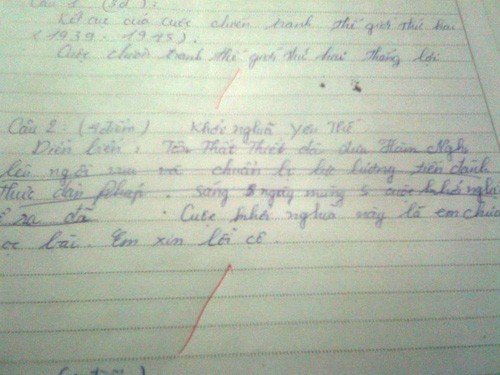 Câu 1 (3đ):
Kết cục của cuộc chiến tranh thế giới thứ hai
(1939 - 1945).
Cuộc chiến tranh thế giới thứ hai thắng lợi
Câu 2: (4 điểm) Khởi nghĩa Yên Thế
Diễn biến: Tôn Thất Thuyết đã đưa Hàm Nghi
lên ngôi vua và chuẩn bị lực lượng tiến đánh
thực dân Pháp. sáng 5 ngày mùng 5 cuộc khởi nghĩa
ra đã. Cuộc khởi nghĩa này là em chưa
học bài. Em xin lỗi cô.